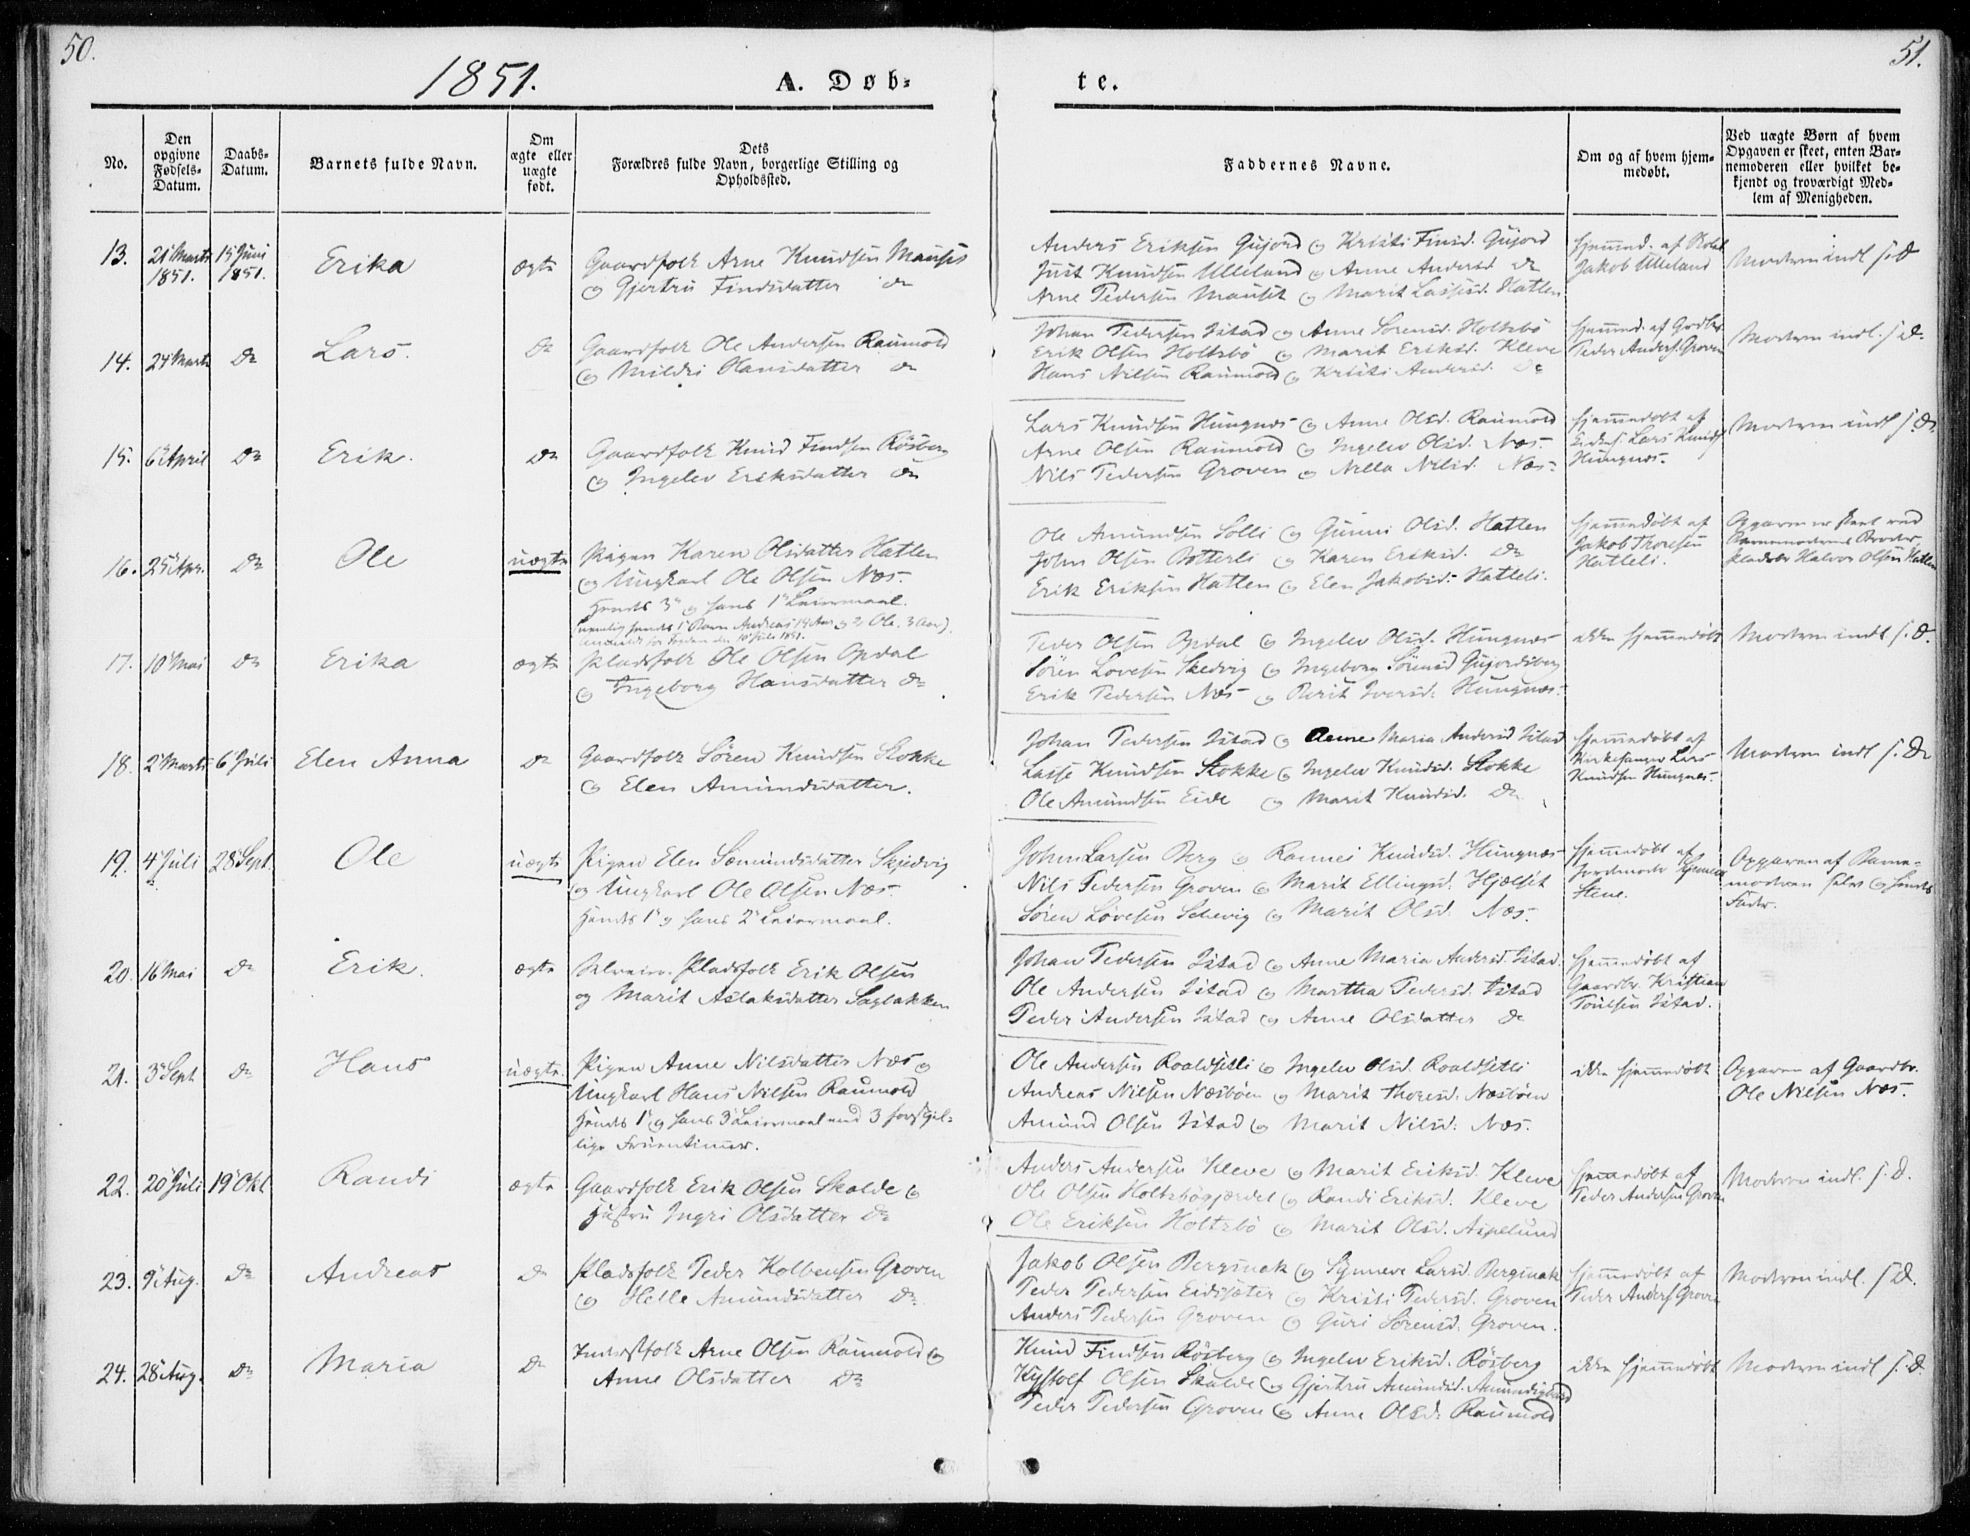 50.
51.
1851.
A. Døb-
te.
No.
Den opgivne Fødsels-Datum.
Daabs-Datum.
Barnets fulde Navn.
Om ægte eller uægte født.
Dets Forældres fulde Navn, borgerlige Stilling og Opholdssted.
Faddernes Navne.
Om og af hvem hjem-medøbt.
Ved uægte Børn af hvem
Opgaven er skeet, enten Bar-
nemoderen eller hvilket be-
kjendt og troværdigt Med-
lem af Menigheden.
13. 21 Marts 1851. 15 Juni 1851. Erika ægte
Gaardfolk Arne Knudsen Mauset
og Gjertru Findsdatter do
Anders Eriksen Gujord og Kristi Finsd. Gujord
Just Knudsen Ulleland og Anne Andersd do
Arne Pedersen Mauset og Marit Lassesd. Hatlen
hjemmed. af
Jakob Ulleland
Moderen indl. s. D.
14. 24 Marts do Lars. do
Gaardfolk Ole Andersen Raumold
og Mildri Hansdatter do
Johan Pedersen Istad og Anne Sørensd. Holtsbø
Erik Olsen Holtsbø og Marit Eriksd. Kleve
Hans Nilsen Raumold og Kristi Andersd. do
hjemmed. af Grdbr.
Peder Anders. Groven
Moderen indl. s. D.
15. 6 April do Erik. do
Gaardfolk Knud Findsen Røsberg
og Ingelev Eriksdatter do
Lars Knudsen Hungnes og Anne Olsd. Raumold
Arne Olsen Raumold og Ingelev Olsd. Næs.
Nils Pedersen Groven og Nella Nilsd. Næs.
hjemmedøbt af
Lars Knuds.
Hungnes.
Moderen indl s. D.
16. 25 Apr. do Ole uægte
Pigen Karen Olsdatter Hatlen
og Ungkarl Ole Olsen Næs.
Hendes 3 og hans 1 Leiermaal.
(nemlig hendes 1 Barn Andreas 14 Aar og 2 Ole, 3 Aar).
Ole Amundsen Solli og Gunni Olsd. Hatlen
John Olsen Botterli og Karen Eriksd. do
Erik Eriksen Hatlen og Elen Jakobsd. Hatleli.
hjemmedøbt af
Jakob Thoresen
Hatleli.
Opgaven er skeet ved
Barnemoderens Broder
Halvor Olsen Hatlen
17. 10 Mai do Erika ægte
Pladsfolk Ole Olsen Opdal
og Ingeborg Hansdatter do
Peder Olsen Opdal og Ingelev Olsd. Hungnes
Sören Lovesen Skedvig og Ingeborg Sörensd Gujordsberg
Erik Pedersen Næs og Berit Iversd. Hungnes.
ikke hjemmedøbt
Moderen indl s. D.
18. 2 Marts 6 Juli Elen Anna do
Gaardfolk Sören Knudsen Stokke
og Elen Amundsdatter.
Johan Pedersen Istad og Anne Maria Andersd Istad
Lasse Knudsen Stokke og Ingelev Knudsd. Stokke
Ole Amundsen Eide og Marit Knudsd. do
hjemmedøbt af
Kirkesanger Lars
Knudsen Hungnes.
Moderen indl s. D.
19. 4 Juli 28 Sept. Ole uægte
Pigen Elen Sæmundsdatter Skjedvig
og Ungkarl Ole Olsen Næs.
Hendes 1 og hans 2 Leiermaal.
John Larsen Berg og Rannei Knudsd. Hungnes
Nils Pedersen Groven og Marit Ellingsd. Hjelset
Sören Lövesen Schevig og Marit Olsd. Næs.
hjemmedøbt af
Jordemoder
Stene.
Opgaven af Barne-
moderen selv og hendes
Fader.
20. 16 Mai do Erik. ægte
Pladsfolk Erik Olsen
og Marit Aslaksdatter Saglakken
Johan Pedersen Istad og Anne Maria Andersd. Istad
Ole Andersen Istad og Martha Pedersd. Istad
Peder Andersen Istad og Anne Olsdatter do
hjemmedøbt af
Gaardbr. Kristian
Poulsen Istad.
21. 3 Sept do Hans uægte.
Pigen Anne Nilsdatter Næs og
Ungkarl Hans Nilsen Raumold
Hendes 1 og hans 3 Leiermaal med 3 forskjel-
lige Fruentimmer.
Ole Andersen Roaldsetli og Ingelev Olsd. Roaldsetli
Andreas Nielsen Næsbøen og Marit Thoresd. Næsbøen
Amund Olsen Istad og Marit Nilsd. Næs.
ikke hjemmedøbt
Opgaven af Gaardbr.
Ole Nielsen Næs.
22. 20 Juli 19 Okt Randi ægte
Gaardfolk Erik Olsen Skalde og
Hustru Ingri Olsdatter do
Anders Andersen Kleve og Marit Eriksd. Kleve
Ole Olsen Holtsbøgjærdet og Randi Eriksd. Kleve
Ole Eriksen Holtsbø og Marit Olsd. Aspelund
hjemmedøbt af
Peder Andersen Groven
Moderen indl. s. D.
23. 9 Aug. do Andreas do
Pladsfolk Peder Kolbensen Groven
og Helle Amundsdatter do
Jakob Olsen Bergsnak og Synneve Larsd. Bergsnak
Peder Pedersen Eidsæter og Kristi Pedersd. Groven
Anders Pedersen Groven og Guri Sörensd. Groven.
hjemmedøbt af
Peder Anders. Groven
Moderen indl. s. D.
24. 28 Aug. do Maria do
Inderstfolk Arne Olsen Raumold og
Anne Olsdatter do
Knud Findsen Røsberg og Ingelev Eriksd. Røsberg
Olsen Skalde og Gjertru Amundsd.
Peder Pedersen Groven og Anne Olsd: Raumold
ikke hjemmedøbt
Moderen indl s. D.